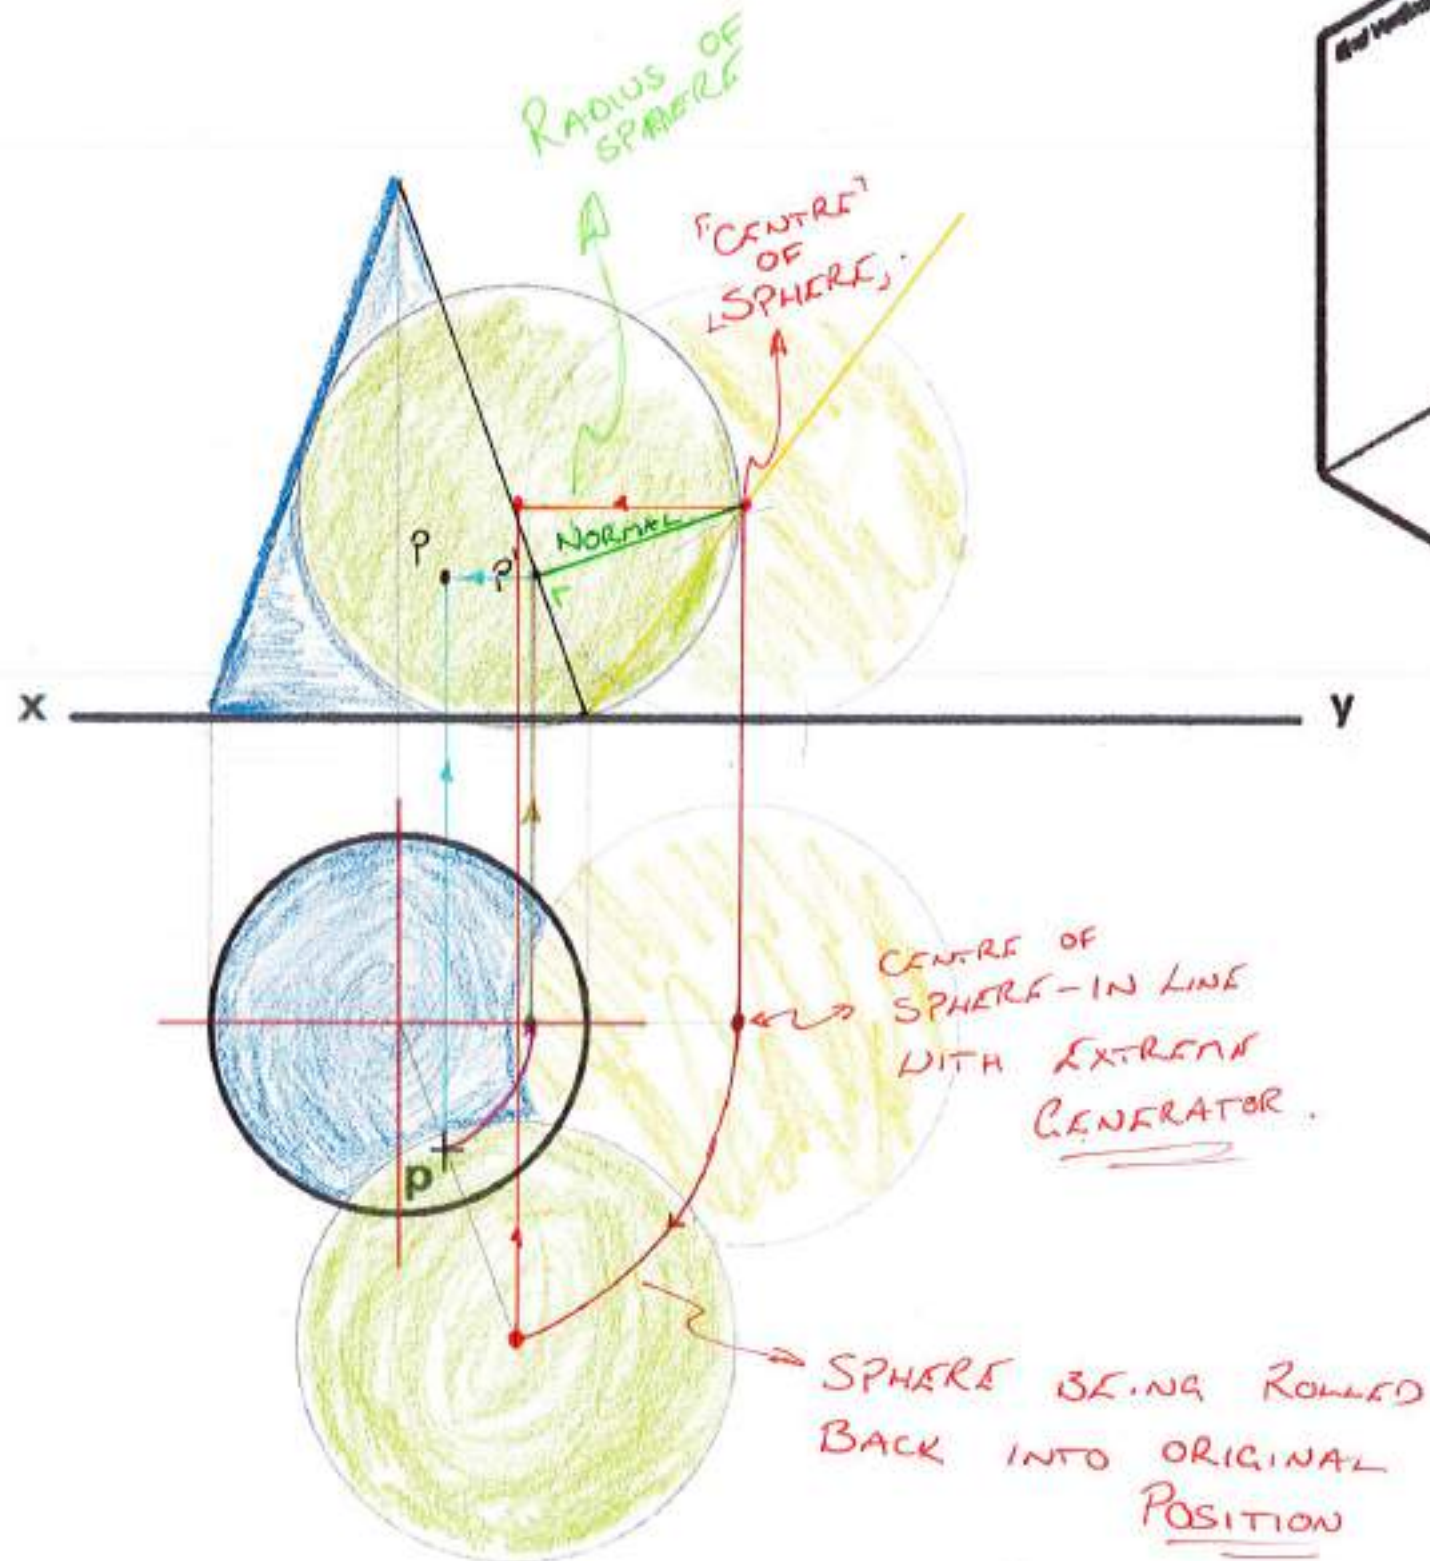 RADIUS OF
SPHERE
"CENTRE"
OF
SPHERE
NORMAL
P
P'
x
y
CENTRE OF
SPHERE-IN LINE
WITH EXTREME
GENERATOR.
p
SPHERE BEING ROLLED
BACK INTO ORIGINAL
POSITION